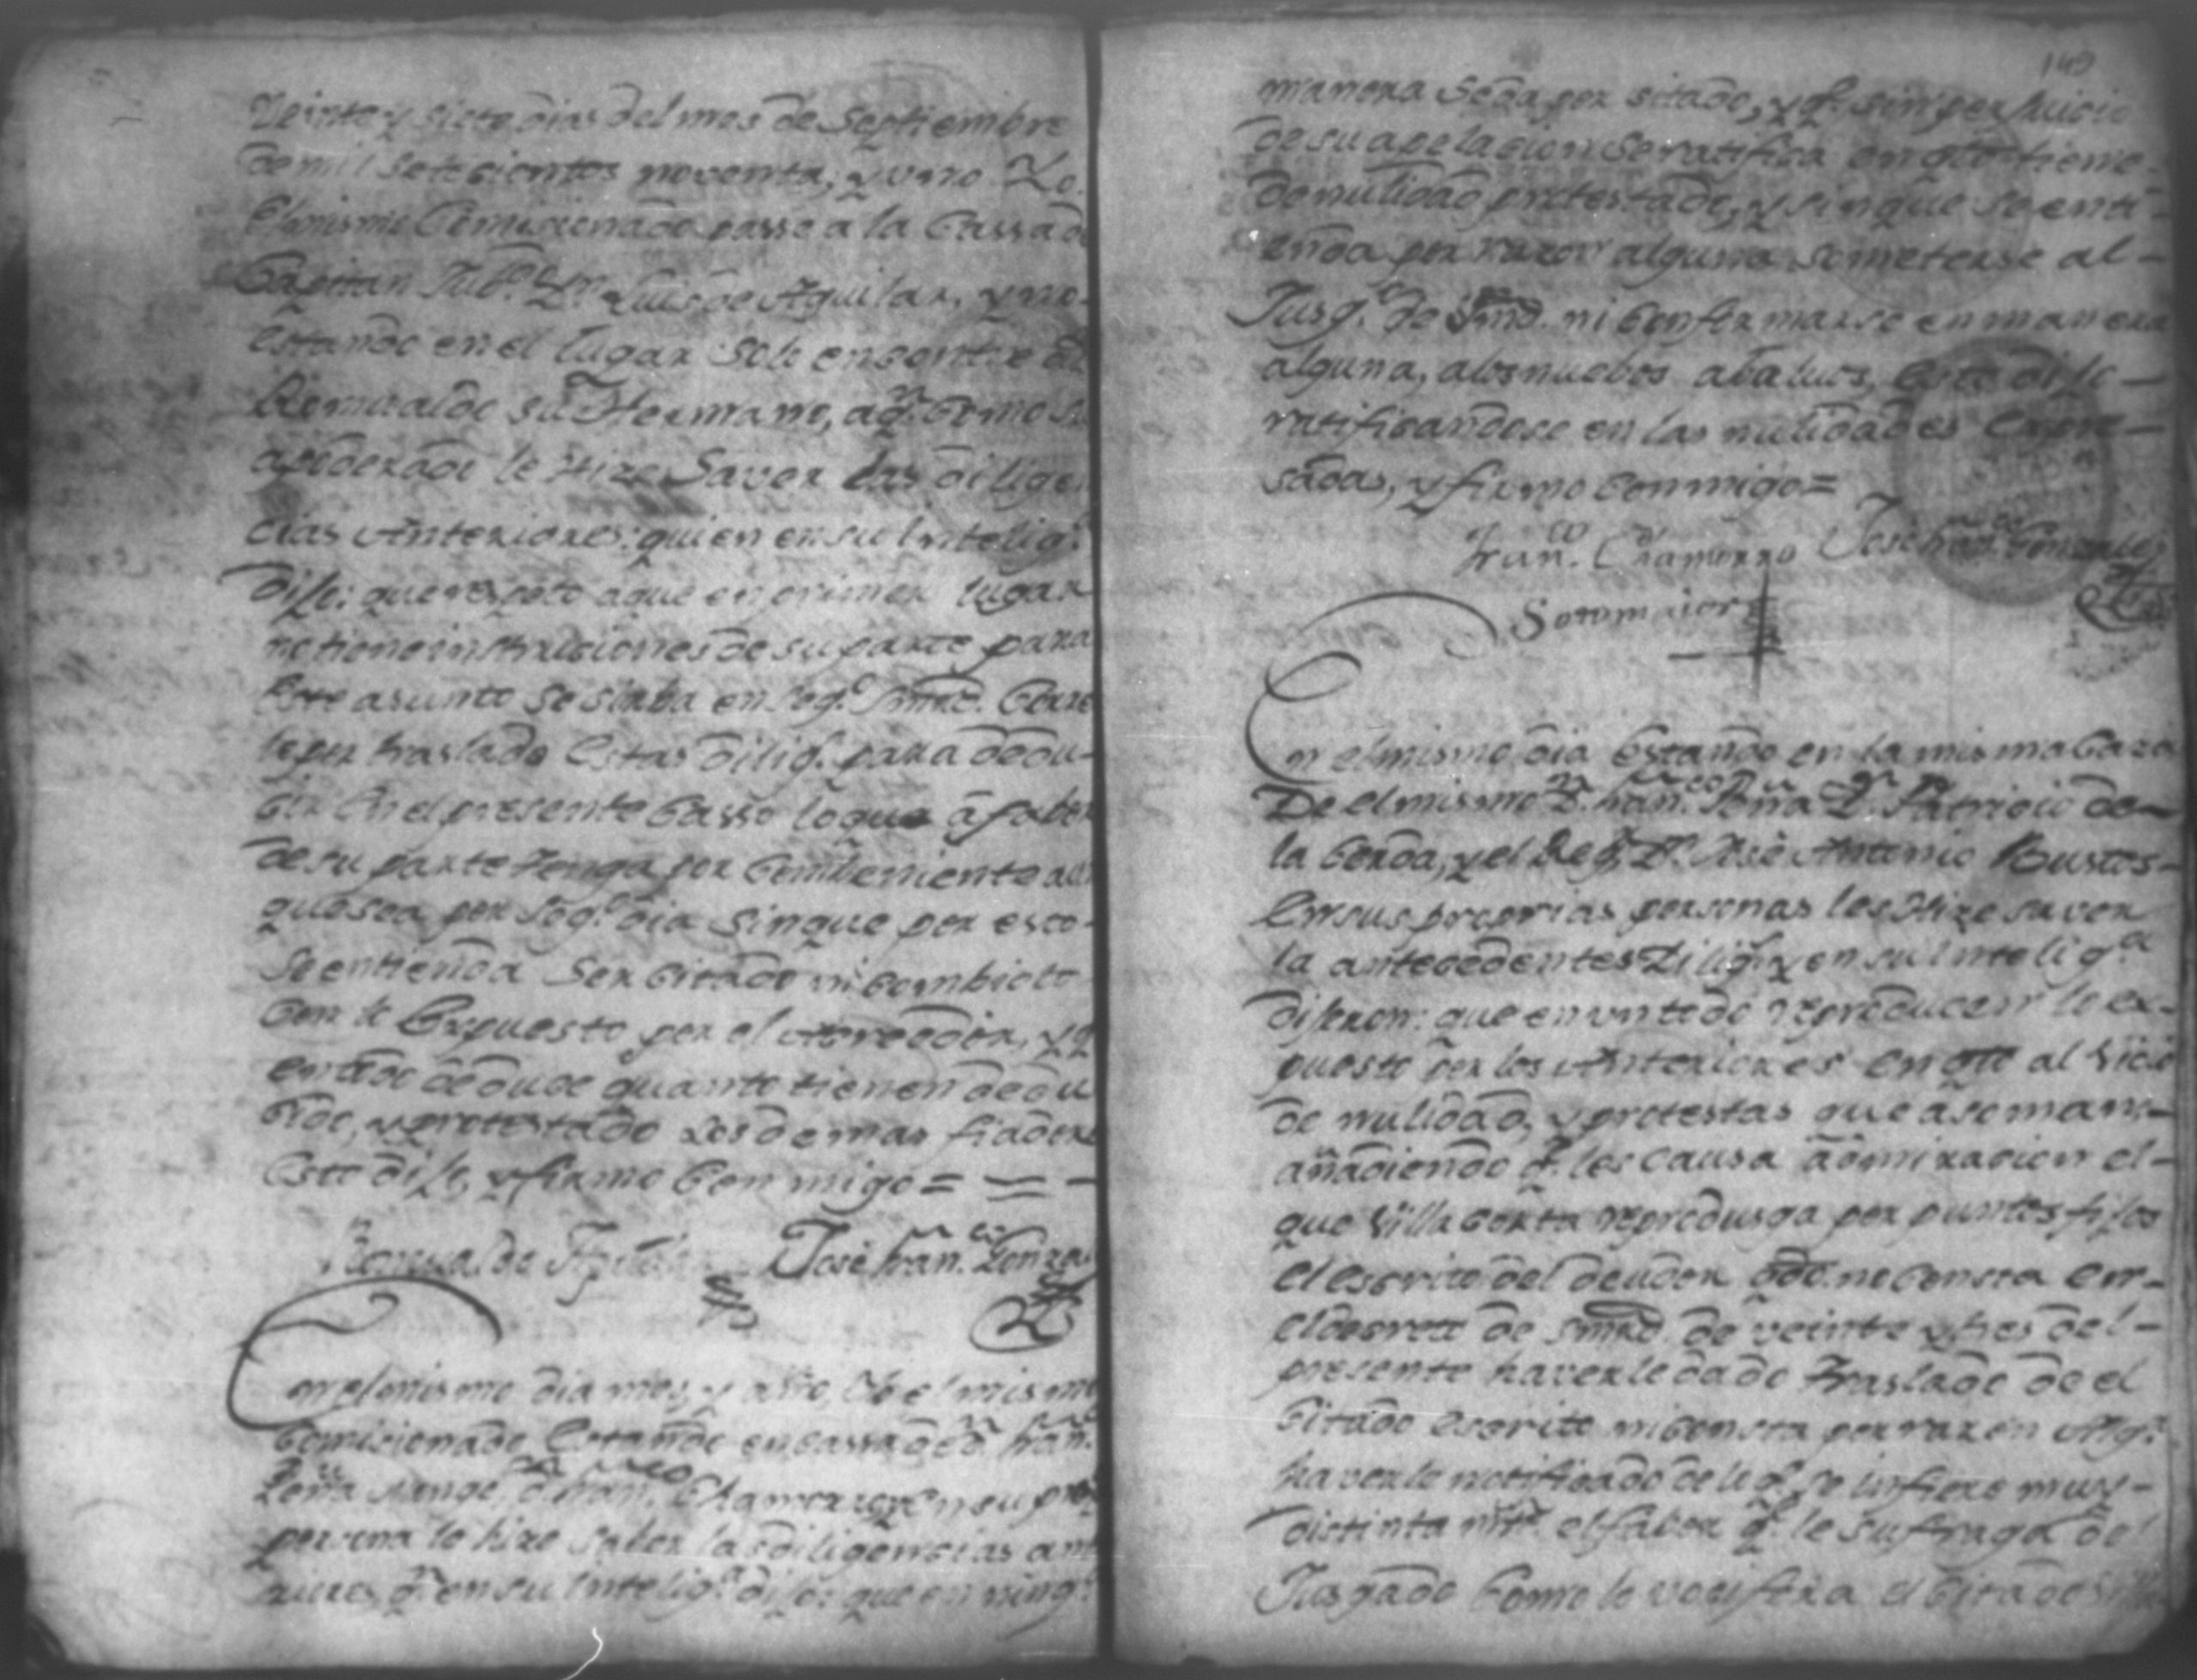 Veinte y siete dias del mes de Septiembre
de mil setecientos noventa, y uno Yo
el mismo Comicionado passe â la Cassa de
Capitan Jub.do Dn. Luis de Aguilar, y no
estando en el lugar solo encontre â
Romualdo su Hermano, aqn. como
apoderado le Hize Saver las dilige
cias Anteriores: quien en su Intelig.a
dijo: que respeto aque en primer lugar
no tiene instrucciones de su parte para
este asunto se sirba en seg.o Smrd. Corre
le por traslado estas dilig.s para dedu-
cir en el presente Casso lo que â fabor
de su parte tenga por combeniente
que sea por seg.o dia sin que por esto
se entienda ser citado ni combicto
con lo Expuesto por el Acreedor, y q
en todo deduce quanto tienen dedu
cido, y protestado los demas fiadores
esto dijo, y firmo Conmigo =
Romualdo Aguilar José Fran.co Gonza
En el mismo dia mes, y año, Yo el mismo
Comicionado Estando en cassa de dn. Fran.co
Peña Dn. Fran.co Chamorro, en su pro
persona le hize saber las diligencias ant
riores, qn. en su Intelig.a dijo: que en ning.a
140
manera se da por sitado, y q.e sin perjuicio
de su apelacion se ratifica en qto. tiene
de nulidad protestado, y sin que se enti-
enda por razon alguna someterse al-
Jusg.o de Smrd. ni Confirmarse en manera
alguna, a los nuebos abaluos, esto dijo-
ratificandose en las nulidades expre-
sadas, y firmo Conmigo =
Fran.co Chamorro José Fran.co Gonzales
Sotomaior
En el mismo dia Estando en la misma Casa
De el mismo D. Fran.co Peña Dn. Patricio de
la Cerda, y el Dn. José Antonio Bustos-
En sus proprias personas les Hize saver
la antecedentes Dilig.s y en su Intelig.a
dijeron: que en un todo reproducen lo ex-
puesto por los Anteriores en qto al Vicio
de nulidad, y protestas que
añadiendo q.e les causa admiracion el-
que Villa Corta reprodusga por puntos fijos
el escrito del deudor qdo. no Consta en-
el decreto de Smrd. de veinte y tres del-
presente haverle dado Traslado de el
Citado escrito ni consta por razon Alg.a
haverle notificado de lo q.e se infiere muy-
distinta mte. el fabor q.e le sufraga del
Jusgado Como lo vocifera el Citado